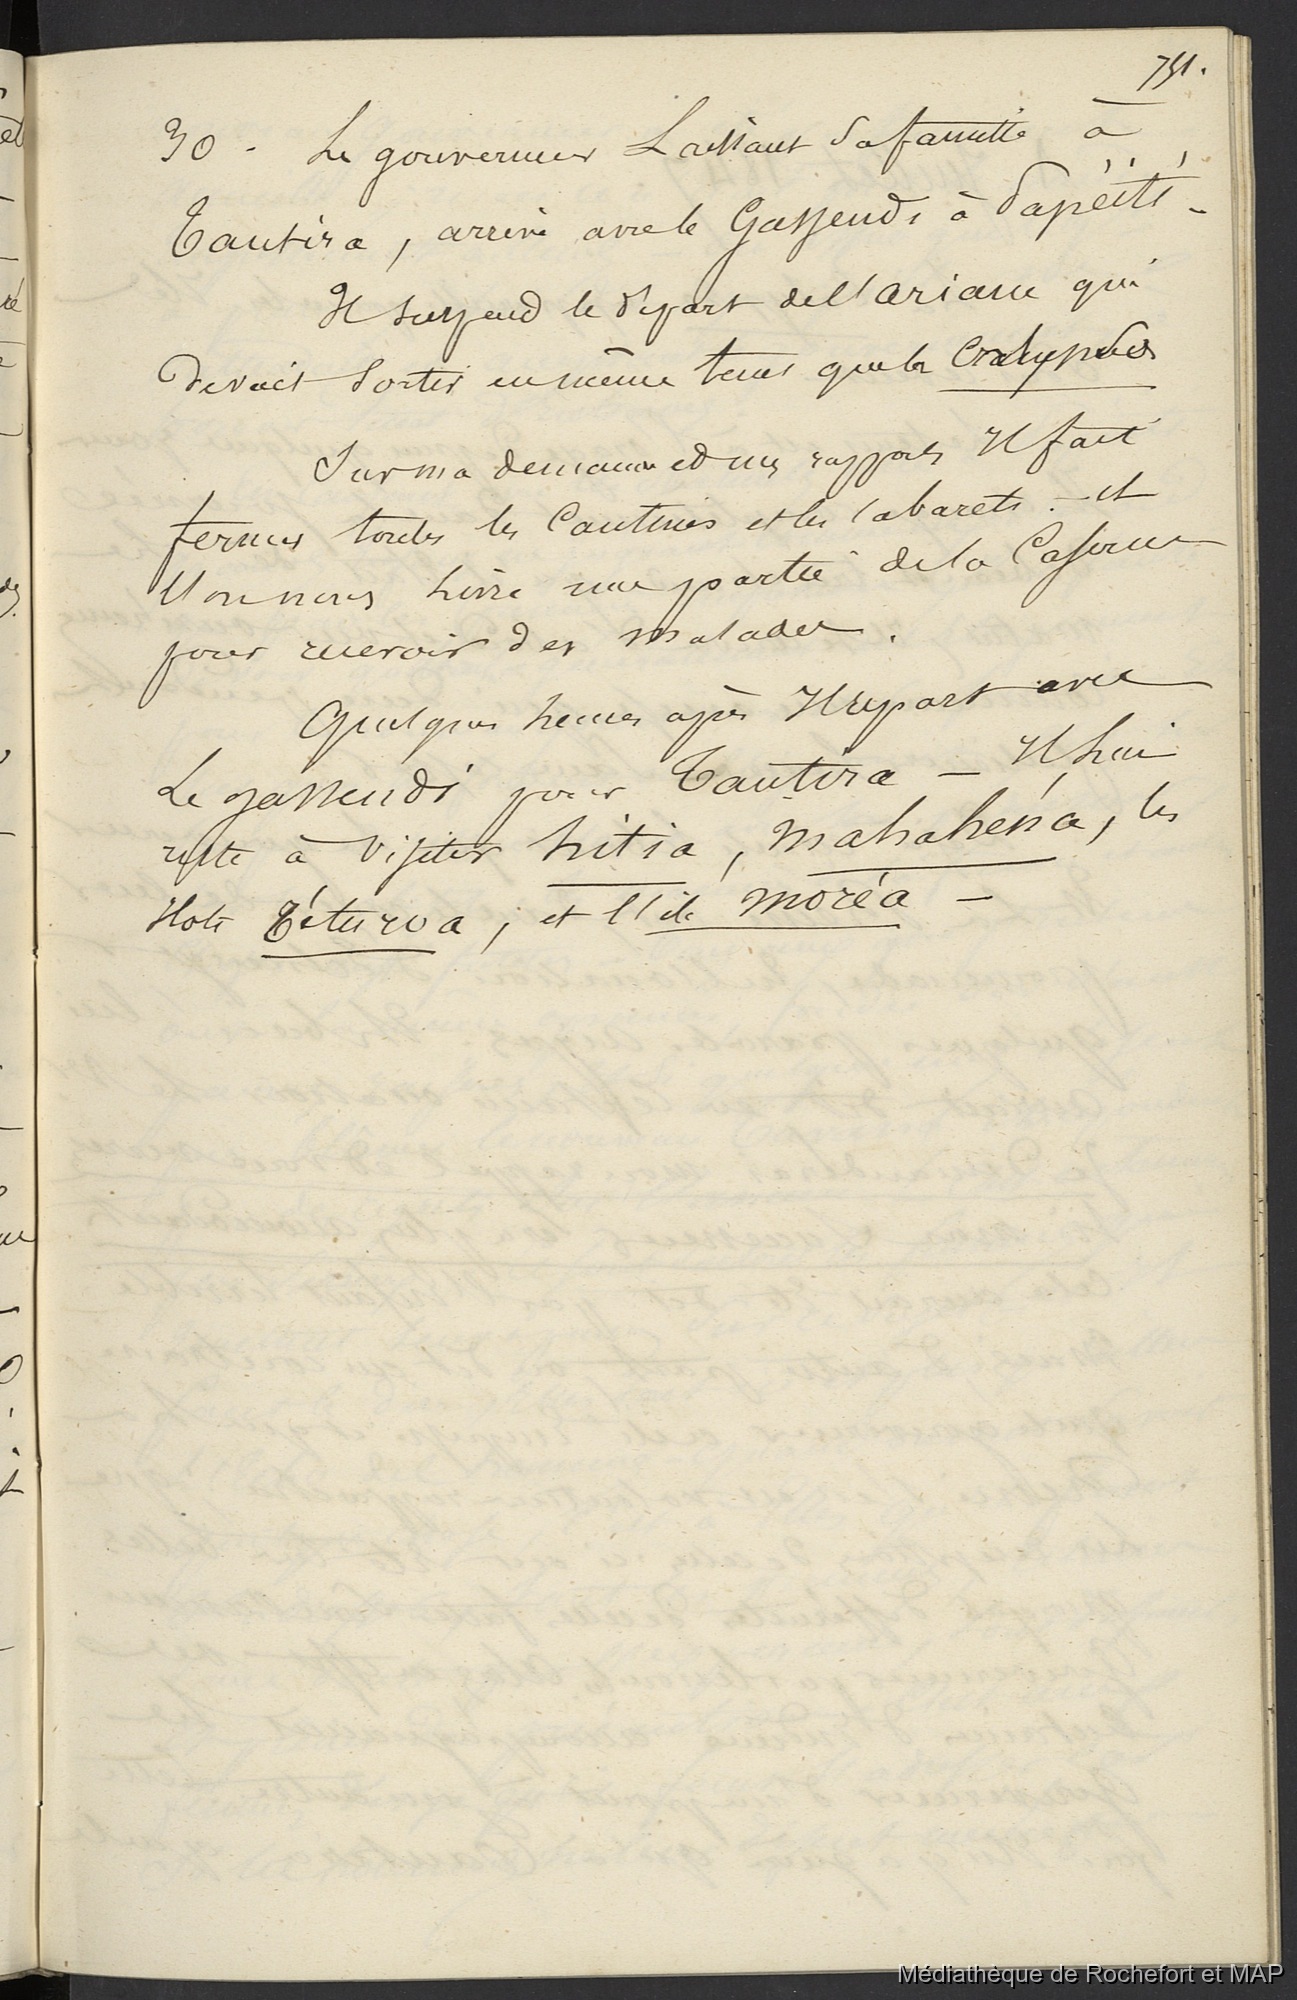 751.
30 - Le gouverneur Laissant sa famille à
Tautira, arrive avec le Gassendi à Papéïté -
Il suspend le départ de l'ariane qui
devait sortir en même tems que la
Sur ma demande et mes rapports Il fait
fermer toutes les Cantines et les Cabarets - et
Il on nous livre une partie de la Caserne
pour recevoir des malades.
Quelques heures après Il repart avec
Le gassendi pour Tautira - Il lui
reste à visiter hitia, mahahéna, les
Ilots Téturoa, et l'ile moréa -
Médiathèque de Rochefort et MAP